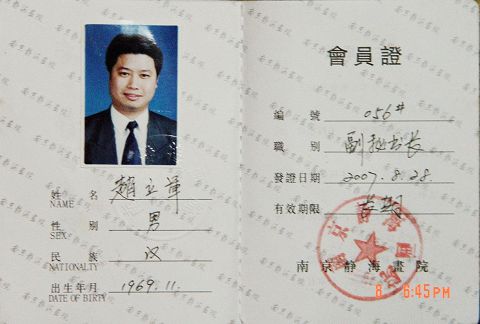 姓 名 趙立軍
NAME
性 別 男
SEX
民 族 汉
NATIONALTY
出生年月 1969.11.
DATE OF BIRTY
會員證
編 號 056#
職 別 副秘书长
發證日期 2007.8.28
有效期限 长期
南京静海畫院
8 6:45PM